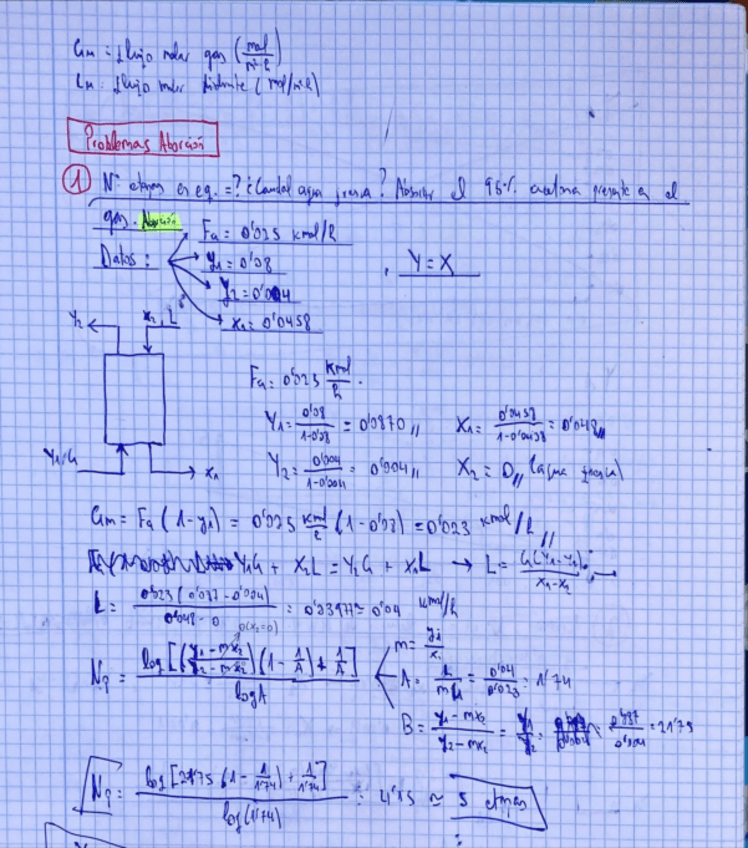 Gm = flujo molar gas (mol/m²·h)
Lm = flujo molar (mol/m²·h)
Problemas Absorción
① Nº etapas en eq. =? ¿Caudal agua fresca? Absorber el 95% acetona presente en el
gas. Absorción
Datos: Fa = 0'025 kmol/h
y1 = 0'08
y2 = 0'004
x1 = 0'0458
Y = X
Y2 x2, L
Y1, G x1
Fa = 0'025 kmol/h.
Y1 = 0'08/(1-0'08) = 0'0870 X1 = 0'0458/(1-0'0458) = 0'048
Y2 = 0'004/(1-0'004) = 0'004 X2 = 0 (agua fresca)
Gm = Fa (1-y1) = 0'025 kmol/h (1-0'08) = 0'023 kmol/h
Y1G + X2L = Y2G + X1L → L = G(Y1-Y2)/(X1-X2)
L = 0'023(0'087-0'004)/(0'048-0) = 0'0397 ≈ 0'04 kmol/h
0(x2=0)
Np = log[((y1-mx2)/(y2-mx2))(1-1/A)+1/A]/logA
m = yi/xi
A = L/mG = 0'04/0'023 = 1'74
B = (y1-mx2)/(y2-mx2) = y1/y2 = 0'087/0'004 = 21'75
Np = log[21'75(1-1/1'74)+1/1'74]/log(1'74) = 4'15 ≈ 5 etapas